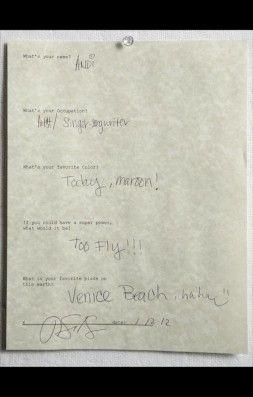 What's your name?
ANDi
What's your occupation?
Artist/ Singer-songwriter
What's your favorite color?
Today, maroon!
If you could have a super power,
what would it be?
Too Fly!!!
What is your favorite place on
this earth?
Venice Beach, haha
Date:
12